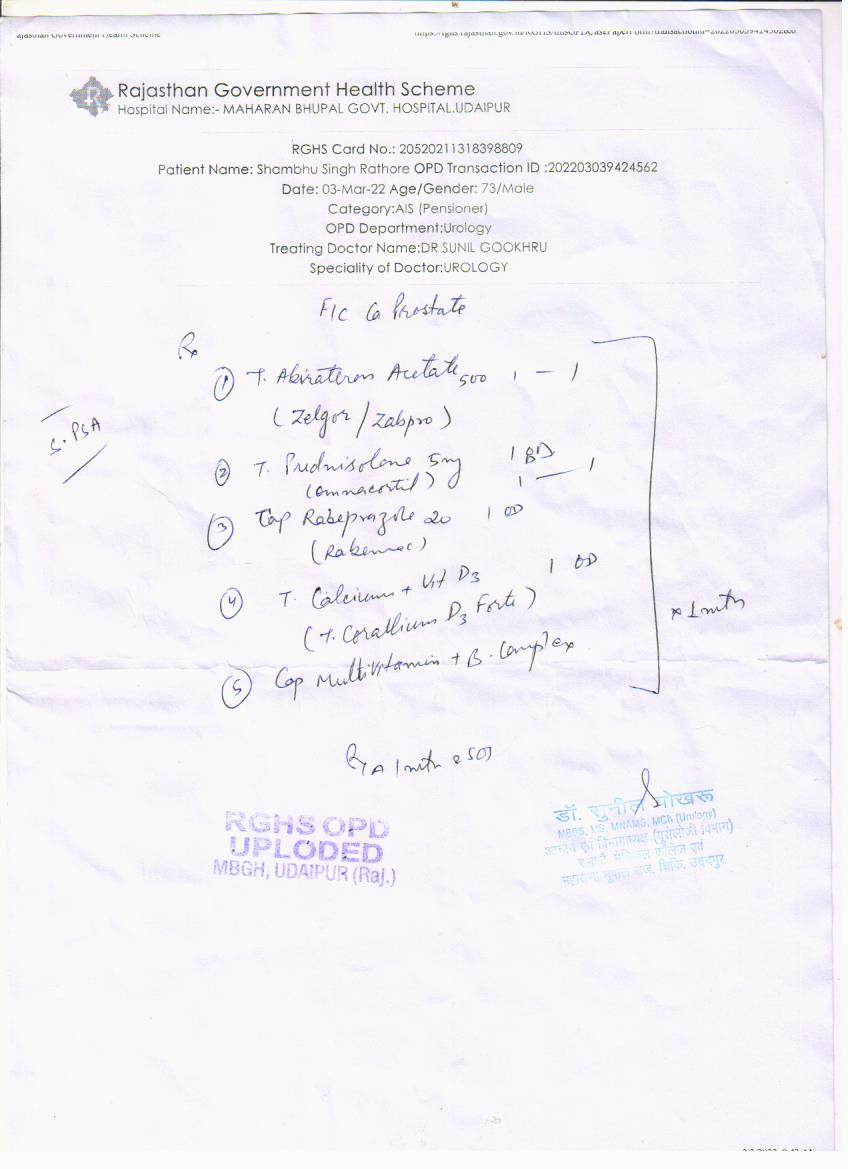 ajasthan Government Health Scheme
Rajasthan Government Health Scheme
Hospital Name:- MAHARAN BHUPAL GOVT. HOSPITAL,UDAIPUR
RGHS Card No.: 20520211318398809
Patient Name: Shambhu Singh Rathore OPD Transaction ID :202203039424562
Date: 03-Mar-22 Age/Gender: 73/Male
Category:AIS (Pensioner)
OPD Department:Urology
Treating Doctor Name:DR SUNIL GOOKHRU
Speciality of Doctor:UROLOGY
F/C Ca Prostate
Rx
① T. Abirateron Acetate 500 1 — 1
(Zelgor/Zabpro)
S. PSA
② T. Prednisolone 5mg 1 BD
(omnacortil) 1 — 1
③ Cap Rabeprazole 20 1 OD
(Rabemac)
④ T. Calcium + Vit D3 1 OD
(T. Corallium D3 Forte)
x 1 mth
⑤ Cap Multivitamin + B. Complex
1 mth
RGHS OPD
UPLODED
MBGH, UDAIPUR (Raj.)
डॉ. सुनील गोखरू
MBBS, MS, MNAMS, MCh (Urology)
आचार्य एवं विभागाध्यक्ष (यूरोलॉजी विभाग)
कॉलेज एवं
महाराणा भूपाल राज. चिकि. उदयपुर